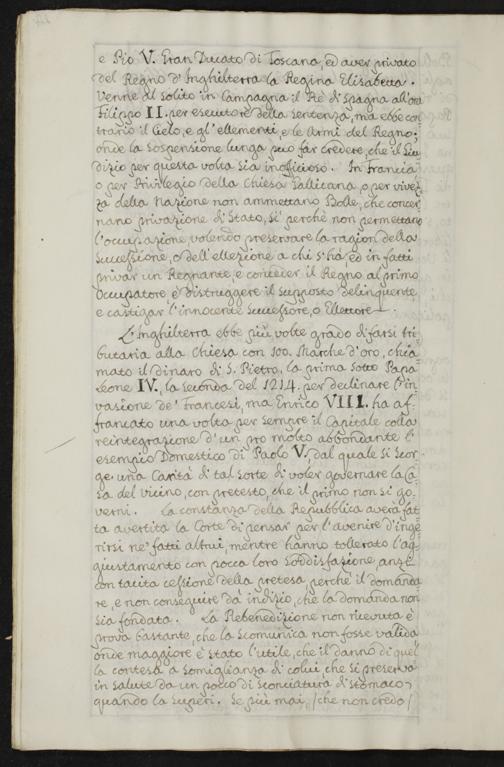 e Pio V. Gran Ducato di Toscana, ed aver privato
del Regno d'Inghilterra la Regina Elisabetta.
Venne al solito in Campagna il Rè di Spagna all'ora
Filippo II. per esecutore della sentenza, ma ebbe con
trario il Cielo, e gl'ellementi, e le Armi del Regno;
onde la sospensione lunga può far credere, che il Giu
dizio per questa volta sia inofficioso. In Francia
o per Privilegio della Chiesa Gallicana, o per vivez=
za della Nazione non ammettano Bolle, che concer
nano privazione di Stato, sì perchè non permettano
l'occupazione, volendo preservare la ragion della
Successione, o dell'ellezione a chi s'hà, ed in fatti
privar un Regnante, e conceder il Regno al primo
Occupatore è distruggere il supposto delinquente
e castigar l'innocente Successore, o Ellettore.
L'Inghilterra ebbe più volte grado di farsi tri
butaria alla Chiesa con 100. Marche d'oro, chia
mato il dinaro di S. Pietro, la prima sotto Papa
Leone IV., la seconda del 1214. per declinare l'in
vasione de' Francesi, ma Enrico VIII. ha af=
francato una volta per sempre il Capitale colla
reintegrazione d'un pro molto abbondante l'
esempio Domestico di Paolo V. dal quale si scor=
ge una Carità di tal sorte di voler governare la Ca
sa del vicino, con pretesto, che il primo non si go=
verni. La constanza della Repubblica avera fat=
ta avertita la Corte di pensar per l'avenire d'inge
rirsi ne' fatti altrui, mentre hanno tollerato l'ag=
giustamento con pocca loro soddisfazione, anzi
con tacita cessione della pretesa, perchè il domanda
re, e non conseguire dà indizio, che la domanda non
sia fondata. La Rebenedizione non ricevuta è
prova bastante, che la scomunica non fosse valida
onde maggiore è stato l'utile, che il danno di quel
la contesa a somiglianza di colui, che si preserva
in salute da un pocco di sconciatura di stomaco,
quando la superi. Se più mai, (che non credo)